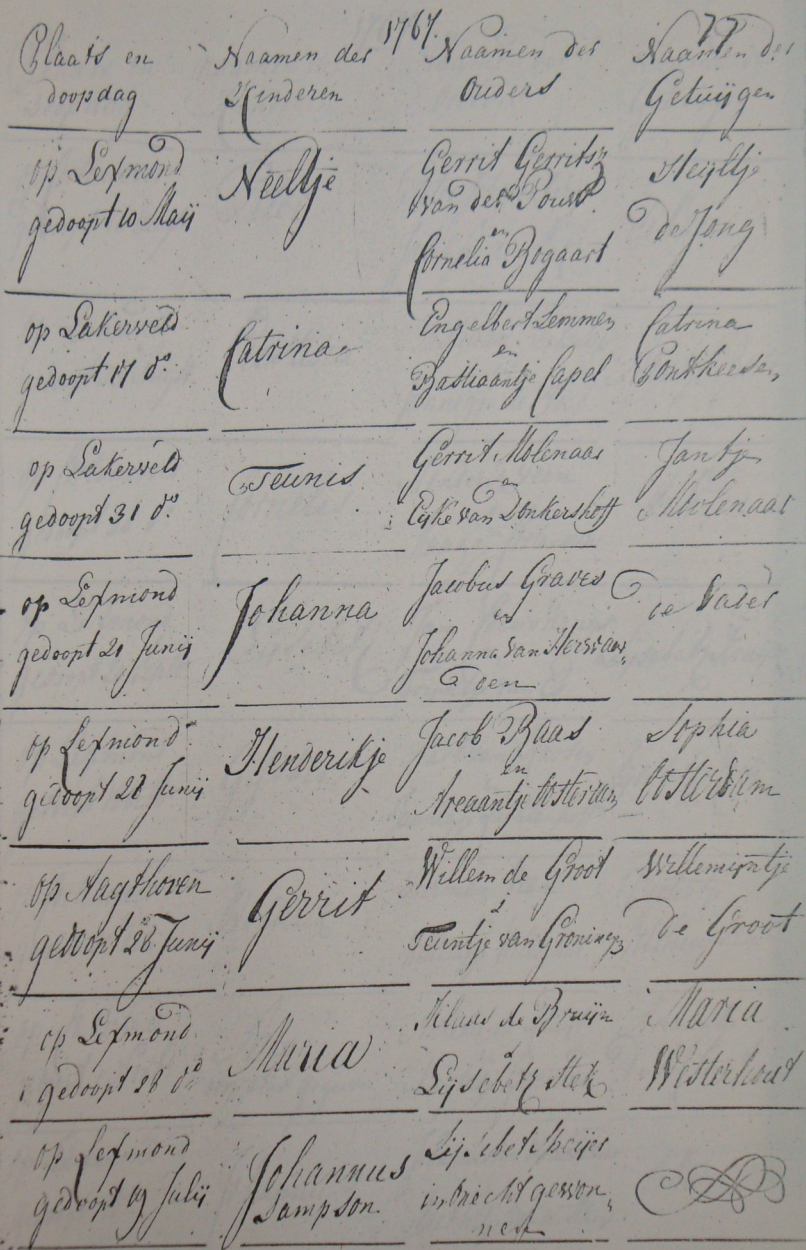 1767. 77
Plaats en
doopdag
Naamen der
Kinderen
Naamen der
Ouders
Naamen der
Getuijgen
op Lexmond
gedoopt 10 Maij
Neeltje
Gerrit Gerritsz
van der
en
Cornelia Bogaart
Heyltje
de Jong
op Lakerveld
gedoopt 17 do
Catrina
Engelbert Lemmen
en
Bastiaantje Capel
Catrina
op Lakerveld
gedoopt 31 do
Teunis
Gerrit Molenaar
en
Eijke van Donkershoff
Jantje
Molenaar
op Lexmond
gedoopt 21 Junij
Johanna
Jacobus Graves
en
Johanna van
den
de Vader
op Lexmond
gedoopt 28 Junij
Henderikje
Jacob Baas
en
Areaantje Oosterdam
Sophia
Oosterdam
op Aagthoven
gedoopt 28 Junij
Gerrit
Willem de Groot
Teuntje van Groningen
Willemijntje
de Groot
op Lexmond
gedoopt 28 do
Maria
Klaas de Bruijn
Lijsebet Stek
Maria
Westerhout
op Lexmond
gedoopt 19 Julij
Johannus
Sampson
Lijsebet
in onecht gewon,
nen